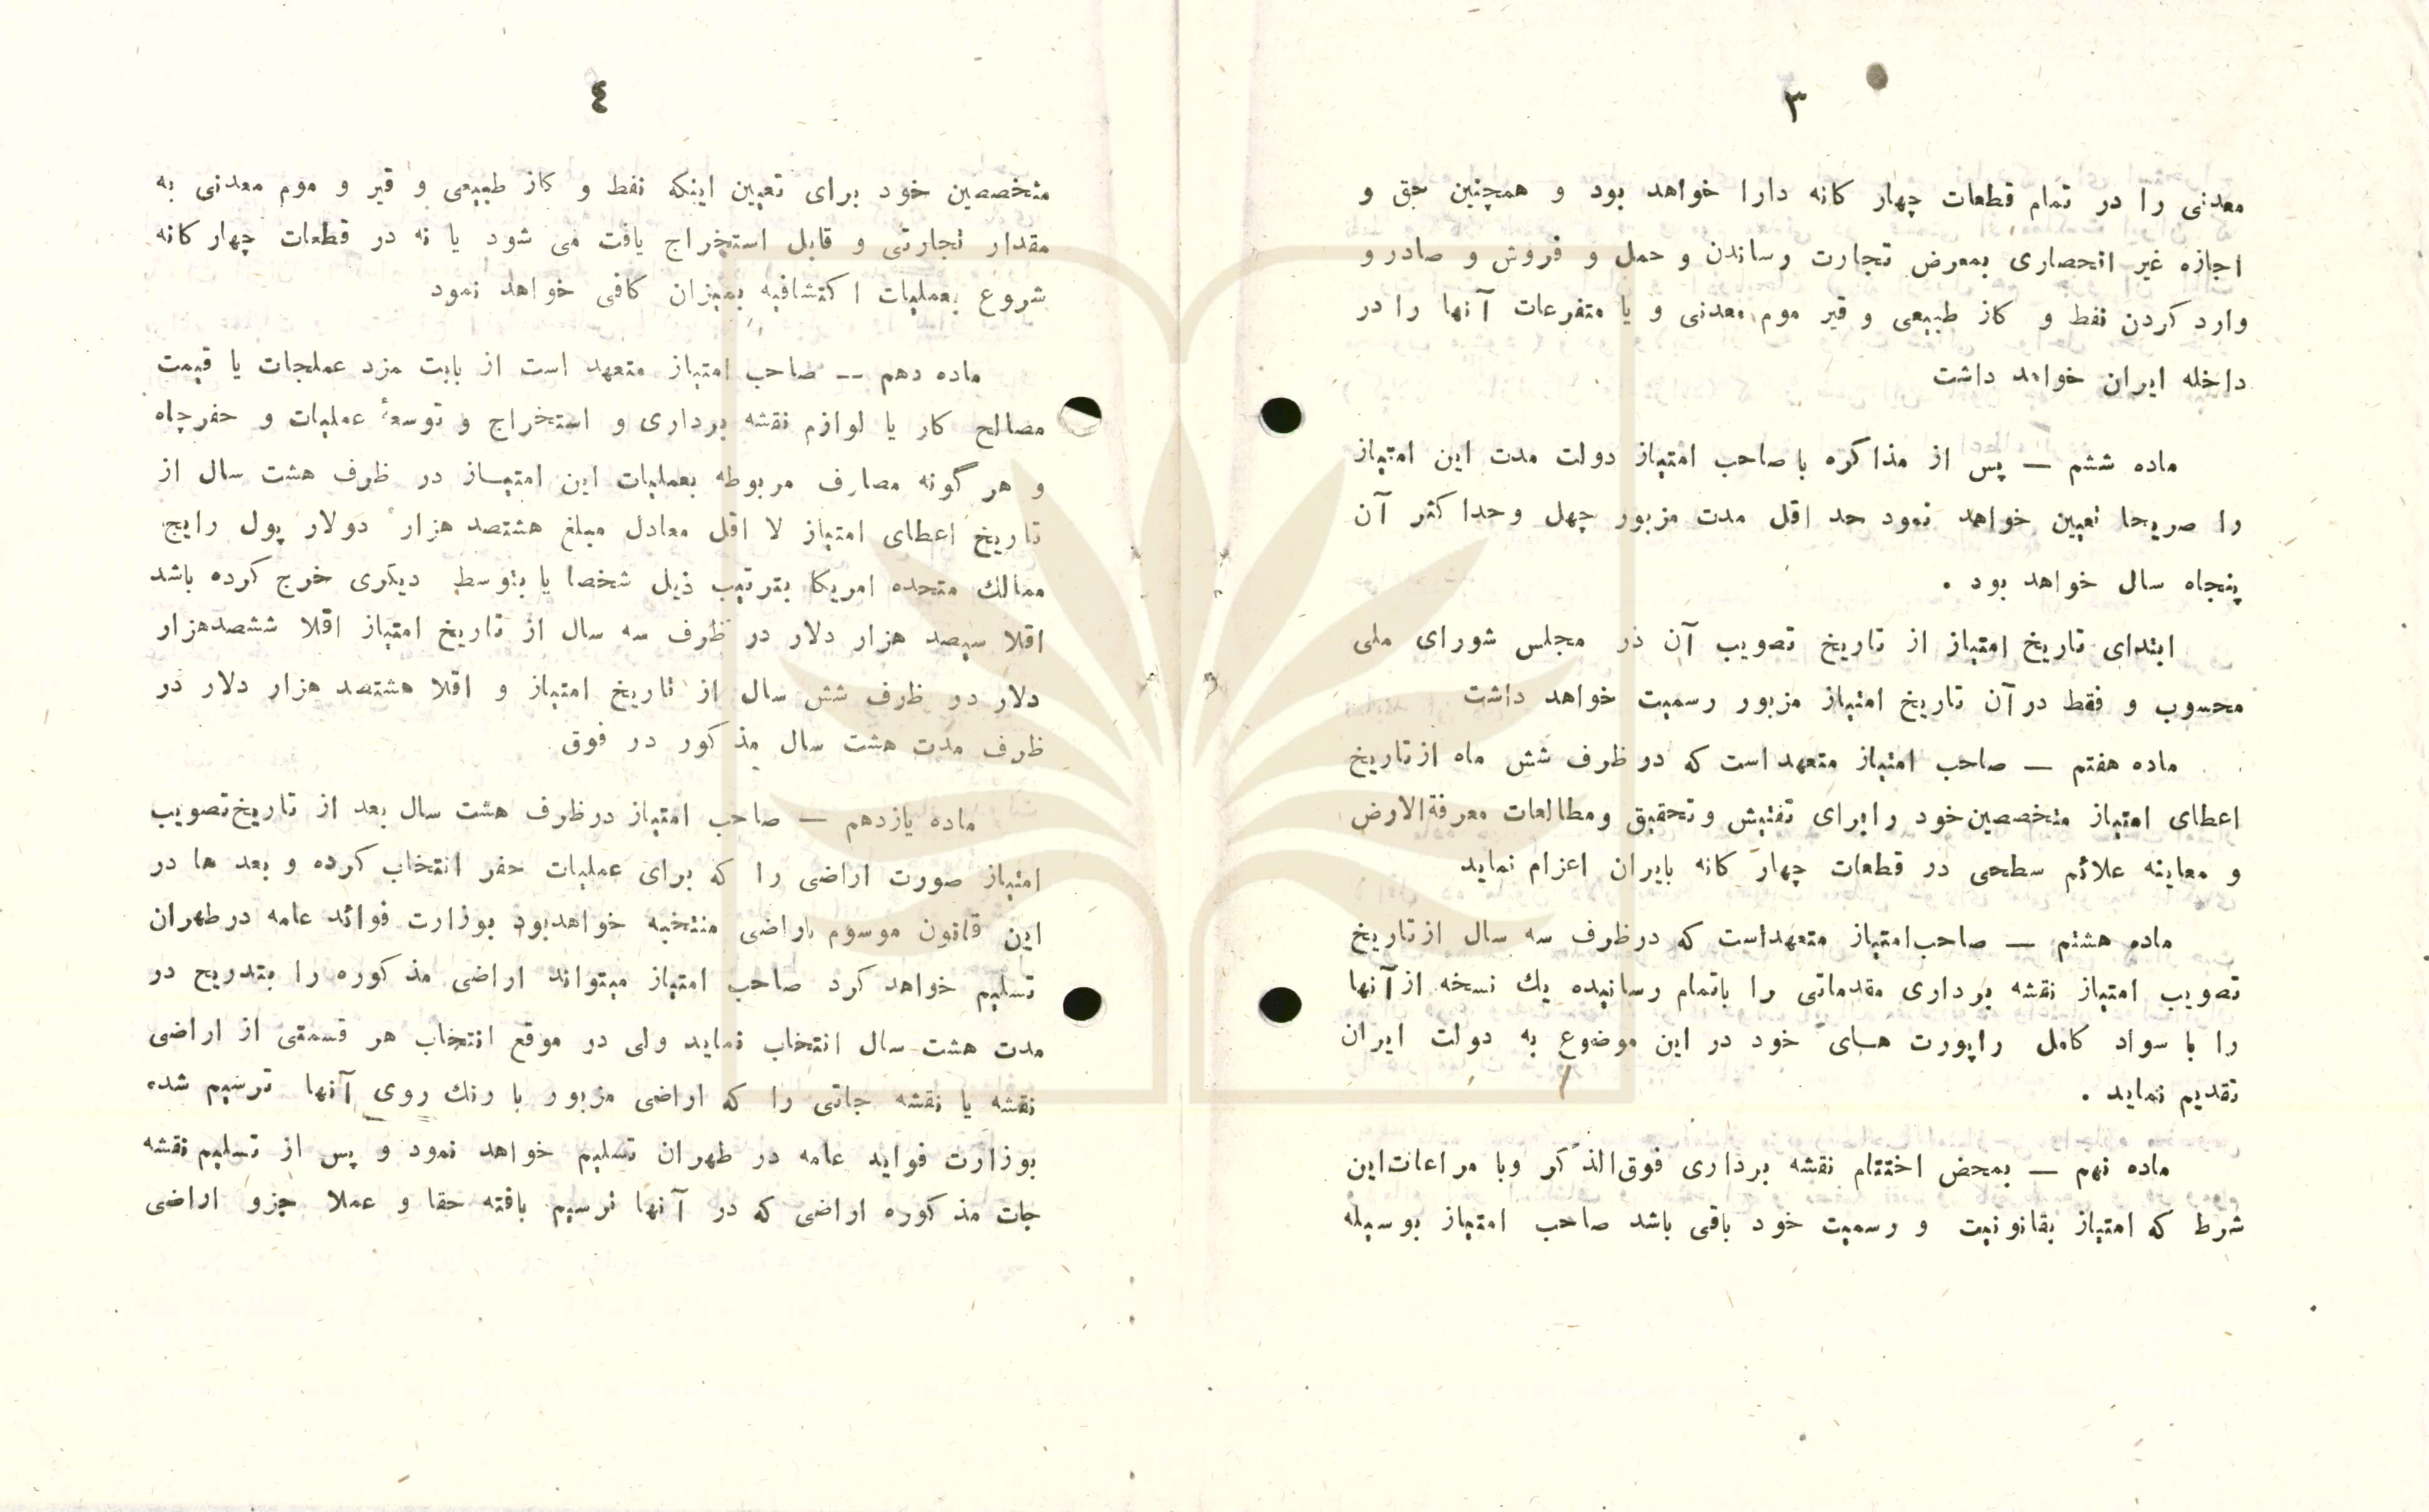 ۳
معدنی را در تمام قطعات چهار كانه دارا خواهد بود و همچنین حق و
اجازه غیر انحصاری بمعرض تجارت رساندن و حمل و فروش و صادر و
وارد كردن نفط و كاز طبیعی و قیر موم معدنی و یا متفرعات آنها را در
داخله ایران خواهد داشت
ماده ششم — پس از مذاكره با صاحب امتیاز دولت مدت این امتیاز
را صریحا تعیین خواهد نمود حد اقل مدت مزبور چهل و حداكثر آن
پنجاه سال خواهد بود .
ابتدای تاریخ امتیاز از تاریخ تصویب آن در مجلس شورای ملی
محسوب و فقط در آن تاریخ امتیاز مزبور رسمیت خواهد داشت
ماده هفتم — صاحب امتیاز متعهد است كه در ظرف شش ماه از تاریخ
اعطای امتیاز متخصصین خود را برای تفتیش و تحقیق و مطالعات معرفة الارض
و معاینه علائم سطحی در قطعات چهار كانه بایران اعزام نماید
ماده هشتم — صاحب امتیاز متعهد است كه در ظرف سه سال از تاریخ
تصویب امتیاز نقشه برداری مقدماتی را باتمام رسانیده یك نسخه از آنها
را با سواد كامل راپورت هـای خود در این موضوع به دولت ایران
تقدیم نماید .
ماده نهم — بمحض اختتام نقشه برداری فوق الذكر و با مراعات این
شرط كه امتیاز بقانونیت و رسمیت خود باقی باشد صاحب امتیاز بوسیله
٤
متخصصین خود برای تعیین اینكه نفط و كاز طبیعی و قیر و موم معدنی به
مقدار تجارتی و قابل استخراج یافت می شود یا نه در قطعات چهار كانه
شروع بعملیات اكتشافیه بمیزان كافی خواهد نمود
ماده دهم -- صاحب امتیاز متعهد است از بابت مزد عملجات یا قیمت
مصالح كار یا لوازم نقشه برداری و استخراج و توسعهٔ عملیات و حفر چاه
و هر گونه مصارف مربوطه بعملیات این امتیـاز در ظرف هشت سال از
تاریخ اعطای امتیاز لا اقل معادل مبلغ هشتصد هزار دولار پول رایج
ممالك متحده امریكا بترتیب ذیل شخصا یا بتوسط دیكری خرج كرده باشد
اقلا سیصد هزار دلار در ظرف سه سال از تاریخ امتیاز اقلا ششصد هزار
دلار در ظرف شش سال از تاریخ امتیاز و اقلا هشتصد هزار دلار در
ظرف مدت هشت سال مذكور در فوق
ماده یازدهم — صاحب امتیاز در ظرف هشت سال بعد از تاریخ تصویب
امتیاز صورت اراضی را كه برای عملیات حفر انتخاب كرده و بعد ها در
این قانون موسوم باراضی منتخبه خواهد بود بوزارت فوائد عامه در طهران
تسلیم خواهد كرد صاحب امتیاز میتواند اراضی مذكوره را بتدریح در
مدت هشت سال انتخاب نماید ولی در موقع انتخاب هر قسمتی از اراضی
نقشه یا نقشه جاتی را كه اراضی مزبور با رنك روی آنها ترسیم شده
بوزارت فواید عامه در طهران تسلیم خواهد نمود و پس از تسلیم نقشه
جات مذكوره اراضی كه در آنها ترسیم یافته حقا و عملا جزو اراضی